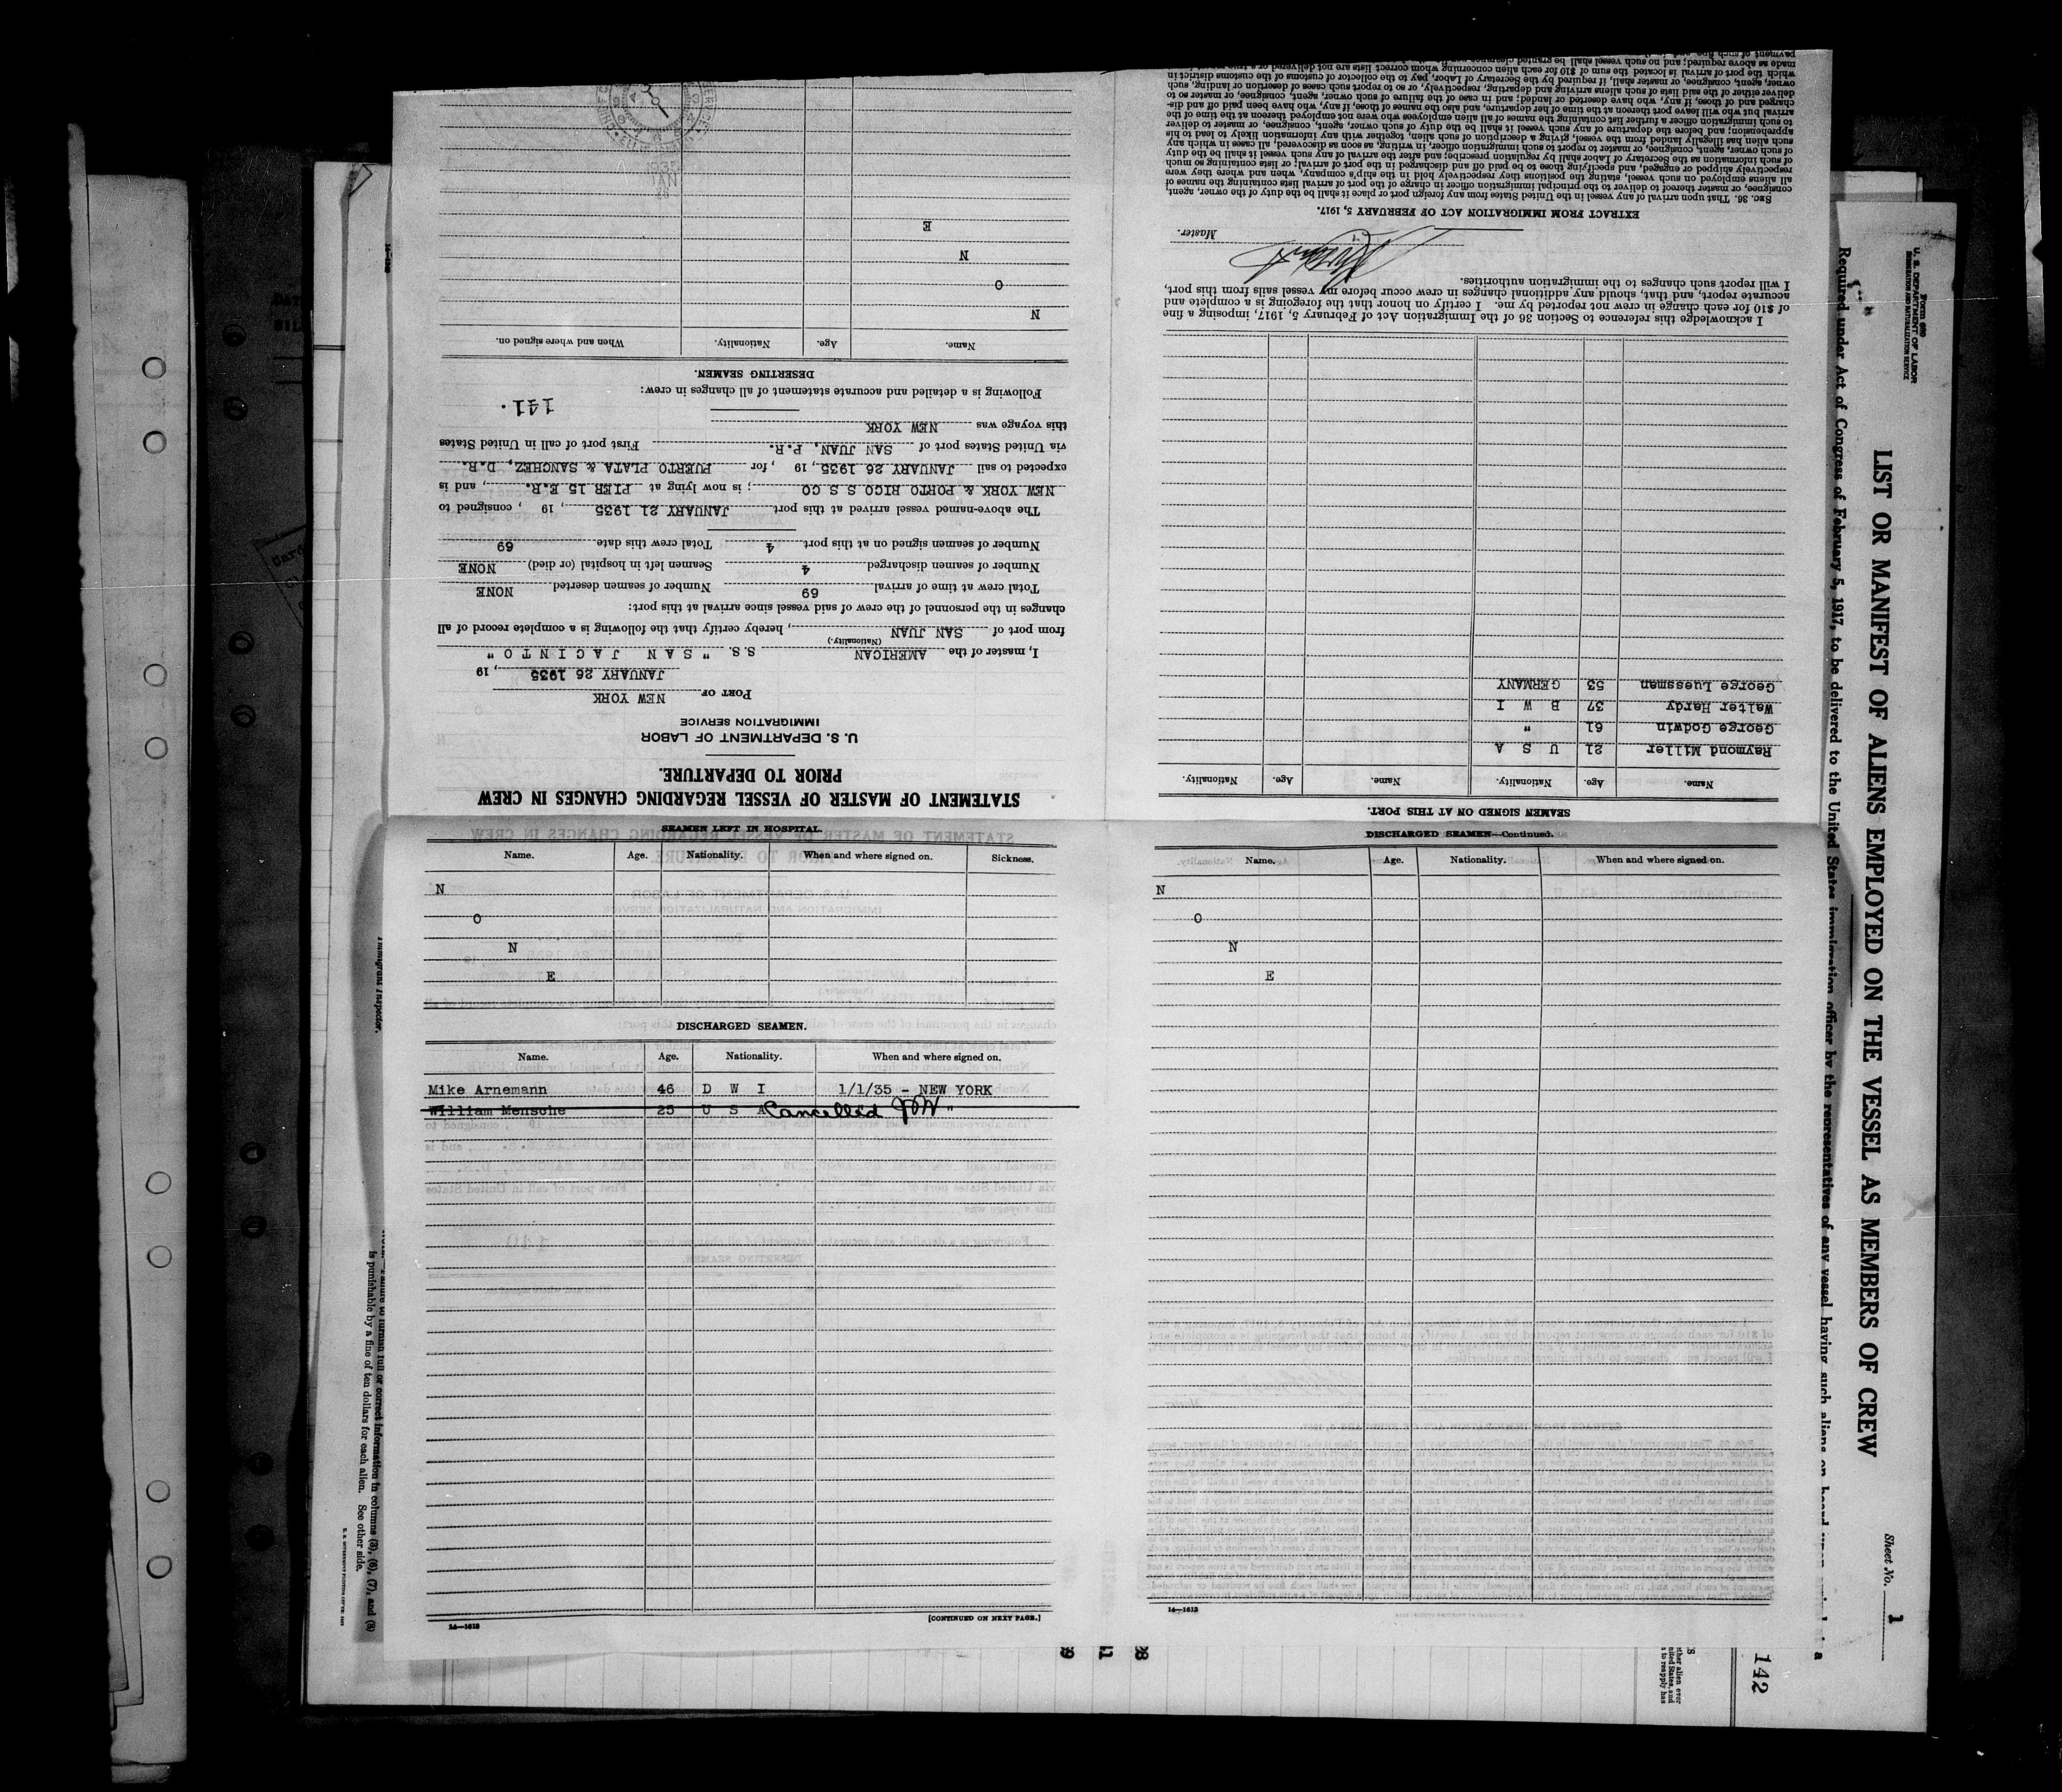 STATEMENT OF MASTER OF VESSEL REGARDING CHANGES IN CREW
PRIOR TO DEPARTURE.
U. S. DEPARTMENT OF LABOR
IMMIGRATION SERVICE
PORT OF NEW YORK
JANUARY 26 1935, 19
I, master of the AMERICAN S.S. "SAN JACINTO"
(Nationality.)
from port of SAN JUAN, hereby certify that the following is a complete record of all
changes in the personnel of the crew of said vessel since arrival at this port:
Total crew at time of arrival 69 Number of seamen deserted NONE
Number of seamen discharged 4 Seamen left in hospital (or died) NONE
Number of seamen signed on at this port 4 Total crew this date 69
The above-named vessel arrived at this port JANUARY 21 1935, 19 , consigned to
NEW YORK & PORTO RICO S S CO; is now lying at PIER 15 E.R., and is
expected to sail JANUARY 26 1935, 19 , for PUERTO PLATA & SANCHEZ, D.R.
via United States port of SAN JUAN, P.R. First port of call in United States
this voyage was NEW YORK
141.
Following is a detailed and accurate statement of all changes in crew:
DESERTING SEAMEN.
Name. Age. Nationality. When and where signed on.
N
O
N
E
SEAMEN SIGNED ON AT THIS PORT.
Name. Age. Nationality. Name. Age. Nationality.
Raymond Miller 21 U S A
George Godwin 61 "
Walter Hardy 37 B W I
George Luessman 53 GERMANY
I acknowledge this reference to Section 36 of the Immigration Act of February 5, 1917, imposing a fine
of $10 for each change in crew not reported by me. I certify on honor that the foregoing is a complete and
accurate report, and that, should any additional changes in crew occur before my vessel sails from this port,
I will report such changes to the immigration authorities.
Master.
EXTRACT FROM IMMIGRATION ACT OF FEBRUARY 5, 1917.
SEC. 36. That upon arrival of any vessel in the United States from any foreign port or place it shall be the duty of the owner, agent,
consignee, or master thereof to deliver to the principal immigration officer in charge of the port of arrival lists containing the names of
all aliens employed on such vessel, stating the positions they respectively hold in the ship's company, when and where they were
respectively shipped or engaged, and specifying those to be paid off and discharged in the port of arrival; or lists containing so much
of such information as the Secretary of Labor shall by regulation prescribe; and after the arrival of any such vessel it shall be the duty
of such owner, agent, consignee, or master to report to such immigration officer, in writing, as soon as discovered, all cases in which any
such alien has illegally landed from the vessel, giving a description of such alien, together with any information likely to lead to his
apprehension; and before the departure of any such vessel it shall be the duty of such owner, agent, consignee, or master to deliver
to such immigration officer a further list containing the names of all alien employees who were not employed thereon at the time of the
arrival but who will leave port thereon at the time of her departure, and also the names of those, if any, who have been paid off and dis-
charged and of those, if any, who have deserted or landed; and in case of the failure of such owner, agent, consignee, or master so to
deliver either of the said lists of such aliens arriving and departing, respectively, or so to report such cases of desertion or landing, such
owner, agent, consignee, or master shall, if required by the Secretary of Labor, pay to the collector of customs of the customs district in
which the port of arrival is located the sum of $10 for each alien concerning whom correct lists are not delivered or a
made as above required; and no such vessel shall be granted
SEAMEN LEFT IN HOSPITAL.
Name. Age. Nationality. When and where signed on. Sickness.
N
O
N
E
DISCHARGED SEAMEN.
Name. Age. Nationality. When and where signed on.
Mike Arnemann 46 D W I 1/1/35 - NEW YORK
William Mensche 25 U S A Cancelled "
[CONTINUED ON NEXT PAGE.]
14—1613
DISCHARGED SEAMEN—Continued.
Name. Age. Nationality. When and where signed on.
N
O
N
E
14—1613
Form 689
U. S. DEPARTMENT OF LABOR
IMMIGRATION AND NATURALIZATION SERVICE
LIST OR MANIFEST OF ALIENS EMPLOYED ON THE VESSEL AS MEMBERS OF CREW
Sheet No. 1
Required under Act of Congress of February 5, 1917, to be delivered to the United States immigration officer by the representatives of any vessel having such aliens on board
142
Immigrant Inspector.
furnish full or correct information in columns (3), (6), (7), and (8)
is punishable by a fine of ten dollars for each alien. See other side.